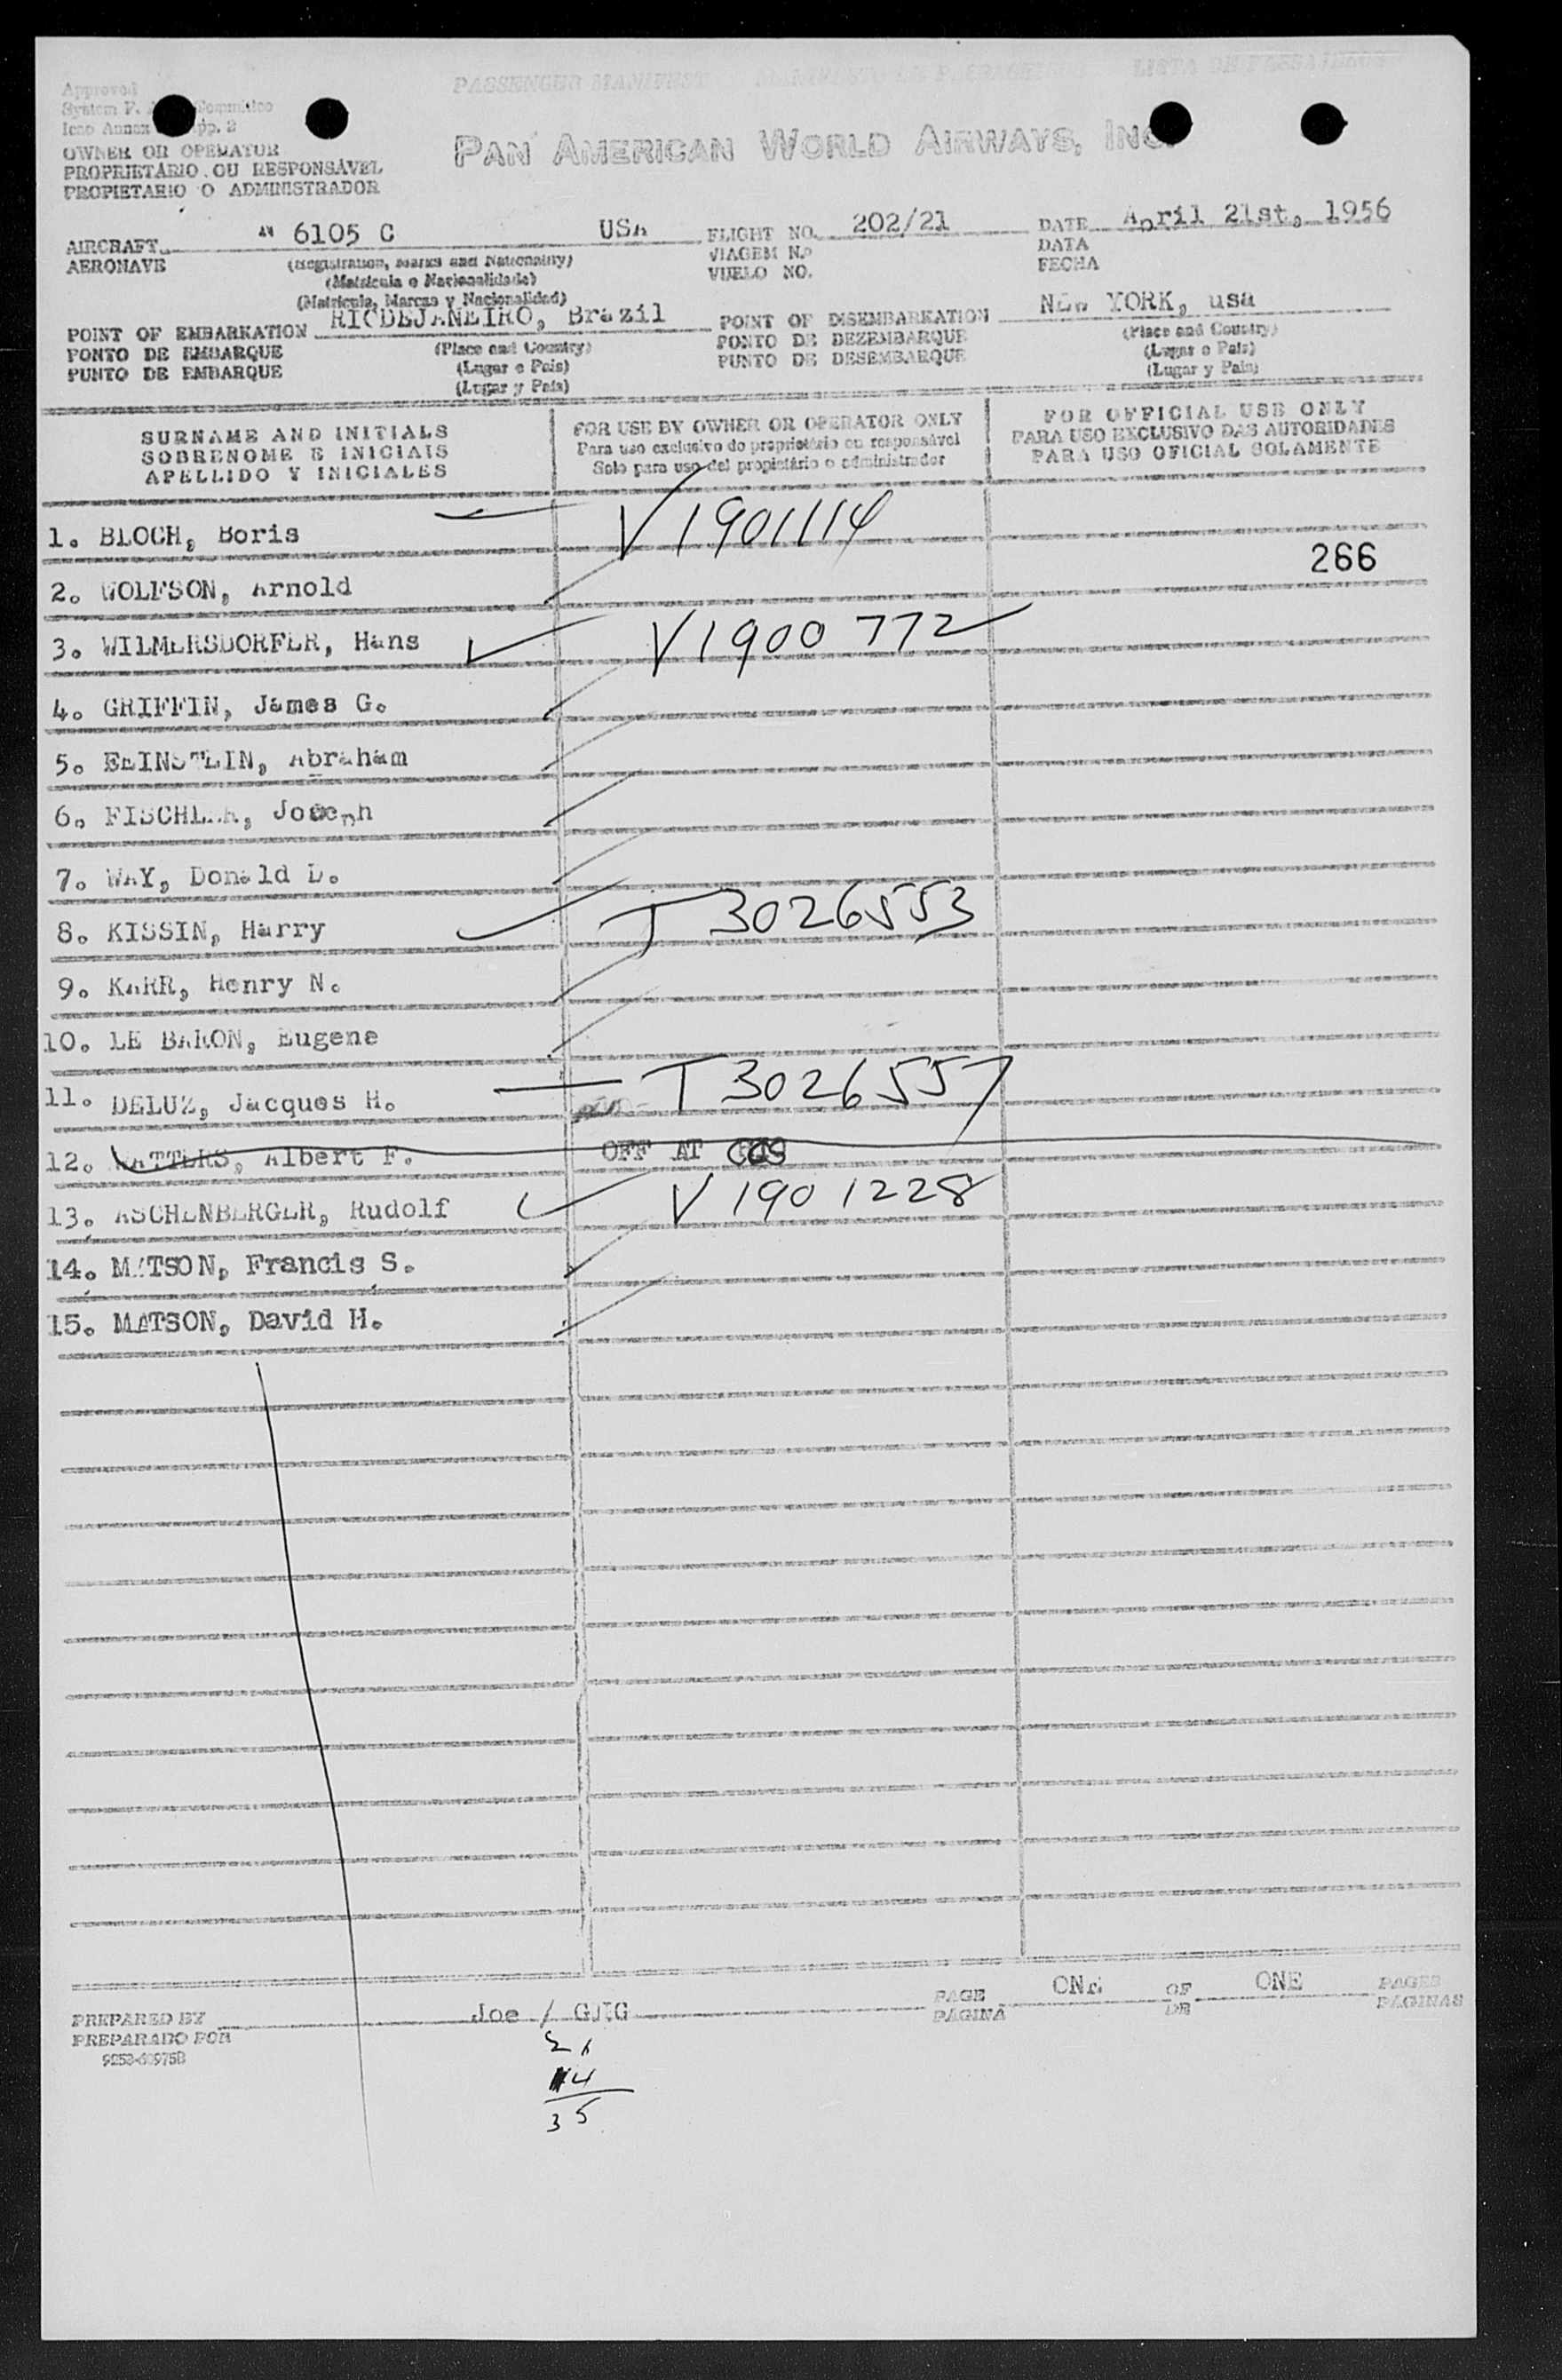 PASSENGER MANIFEST MANIFESTO DE PASSAGEIROS LISTA DE PASAJEROS
Approved
System F.
Icao Annex pp. 2
OWNER OR OPERATOR
PROPRIETÁRIO OU RESPONSÁVEL
PROPIETARIO O ADMINISTRADOR
PAN AMERICAN WORLD AIRWAYS, INC.
AIRCRAFT N 6105 C USA FLIGHT NO. 202/21 DATE April 21st, 1956
AERONAVE VIAGEM N.º DATA
VUELO NO. FECHA
(Registration, Marks and Nationality)
(Matrícula e Nacionalidade)
(Matrícula, Marcas y Nacionalidad)
POINT OF EMBARKATION RIODEJANEIRO, Brazil POINT OF DISEMBARKATION NEW YORK, usa
PONTO DE EMBARQUE (Place and Country) PONTO DE DEZEMBARQUE (Place and Country)
PUNTO DE EMBARQUE (Lugar e País) PUNTO DE DESEMBARQUE (Lugar e País)
(Lugar y País) (Lugar y País)
SURNAME AND INITIALS
SOBRENOME E INICIAIS
APELLIDO Y INICIALES
FOR USE BY OWNER OR OPERATOR ONLY
Para uso exclusivo do proprietário ou responsável
Solo para uso del propietário o administrador
FOR OFFICIAL USE ONLY
PARA USO EXCLUSIVO DAS AUTORIDADES
PARA USO OFICIAL SOLAMENTE
1. BLOCH, Boris V1901114
266
2. WOLFSON, Arnold
3. WILMERSDORFER, Hans V1900772
4. GRIFFIN, James G.
5. EEINSTEIN, Abraham
6. FISCHLER, Joseph
7. WAY, Donald D.
8. KISSIN, Harry T 3026553
9. KARR, Henry N.
10. LE BARON, Eugene
11. DELUZ, Jacques H. T 3026557
12. WATTERS, Albert F. OFF AT CCS
13. ASCHENBERGER, Rudolf V 1901228
14. MATSON, Francis S.
15. MATSON, David H.
PREPARED BY Joe / GJIG PAGE ONE OF ONE PAGES
PREPARADO POR PAGINA DE PAGINAS
9253-60975B
21
14
35